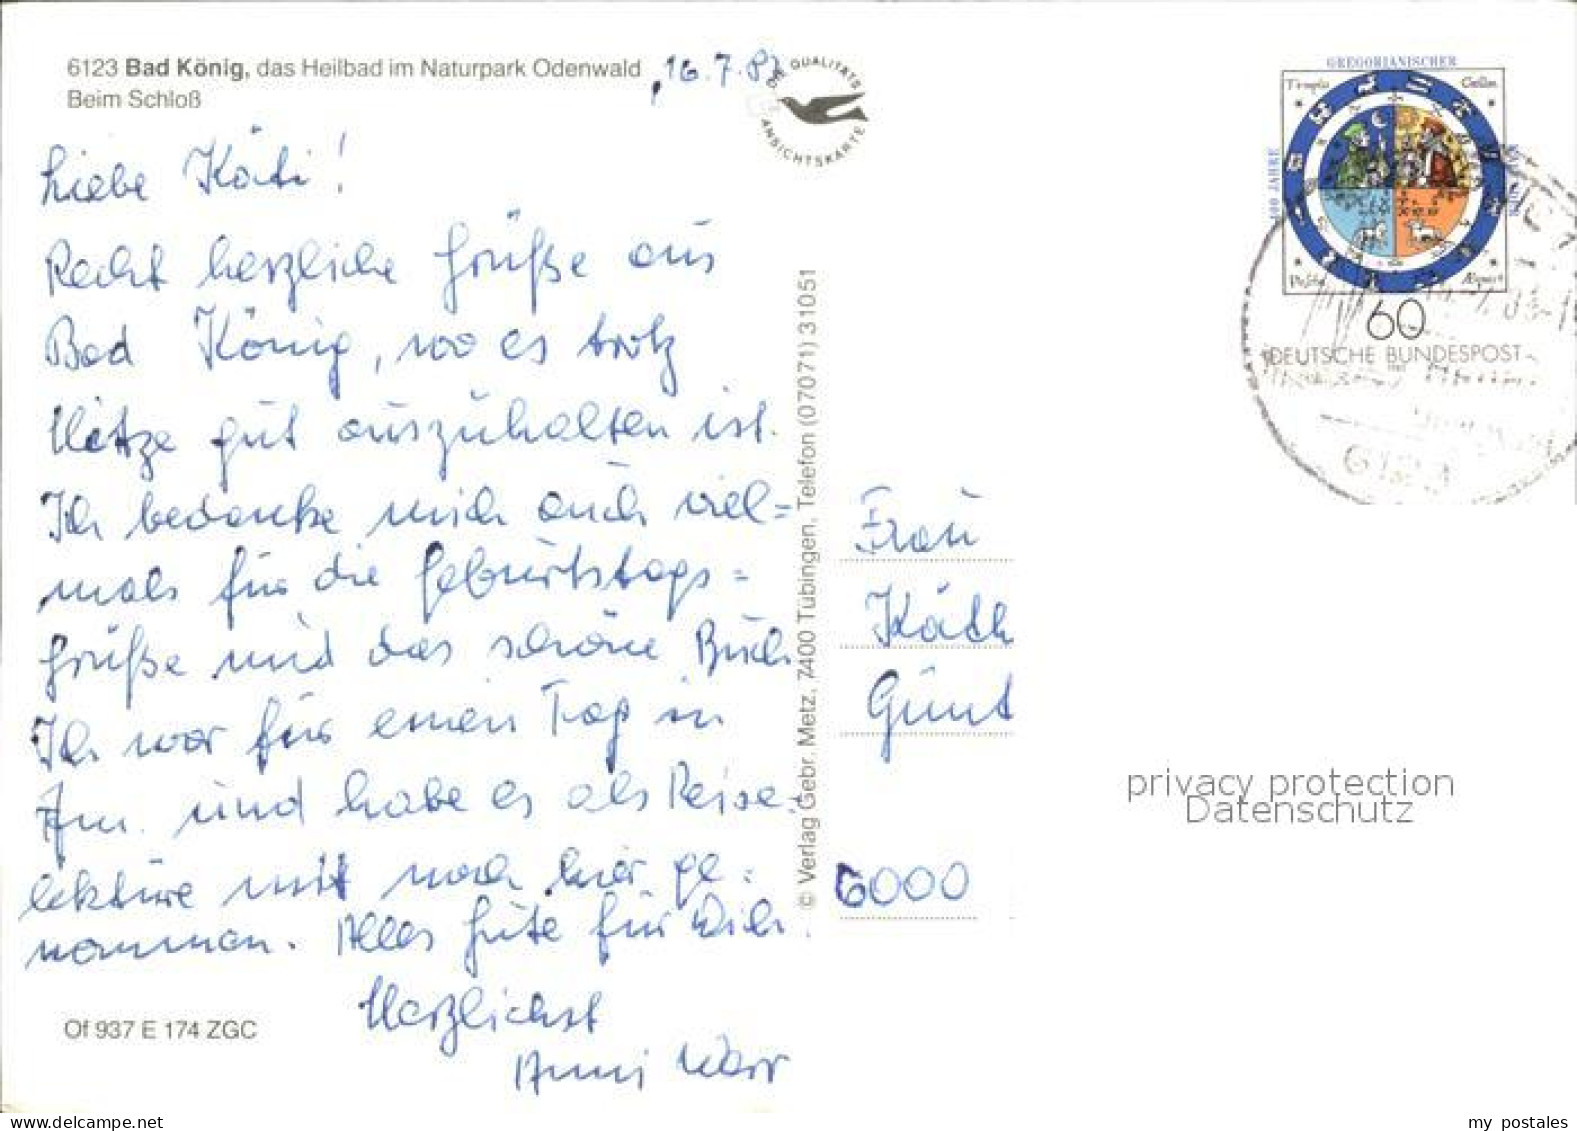 6123 Bad König, das Heilbad im Naturpark Odenwald
Beim Schloß
16.7.83
DIE QUALITÄTS
ANSICHTSKARTE
Liebe Käti!
Recht herzliche Grüße aus
Bad König, wo es trotz
Hitze gut auszuhalten ist.
Ich bedanke mich auch viel=
mals für die Geburtstags=
grüße und das schöne Buch
Ich war für einen Tag in
und habe es als Reise=
lektüre mit nach hier ge=
nommen. Alles Gute für Dich.
Herzlichst
Anni
Of 937 E 174 ZGC
© Verlag Gebr. Metz, 7400 Tübingen, Telefon (07071) 31051
GREGORIANISCHER
400 JAHRE
60
DEUTSCHE BUNDESPOST
6123
Frau
Käth
Günt
6000
privacy protection
Datenschutz
my postales